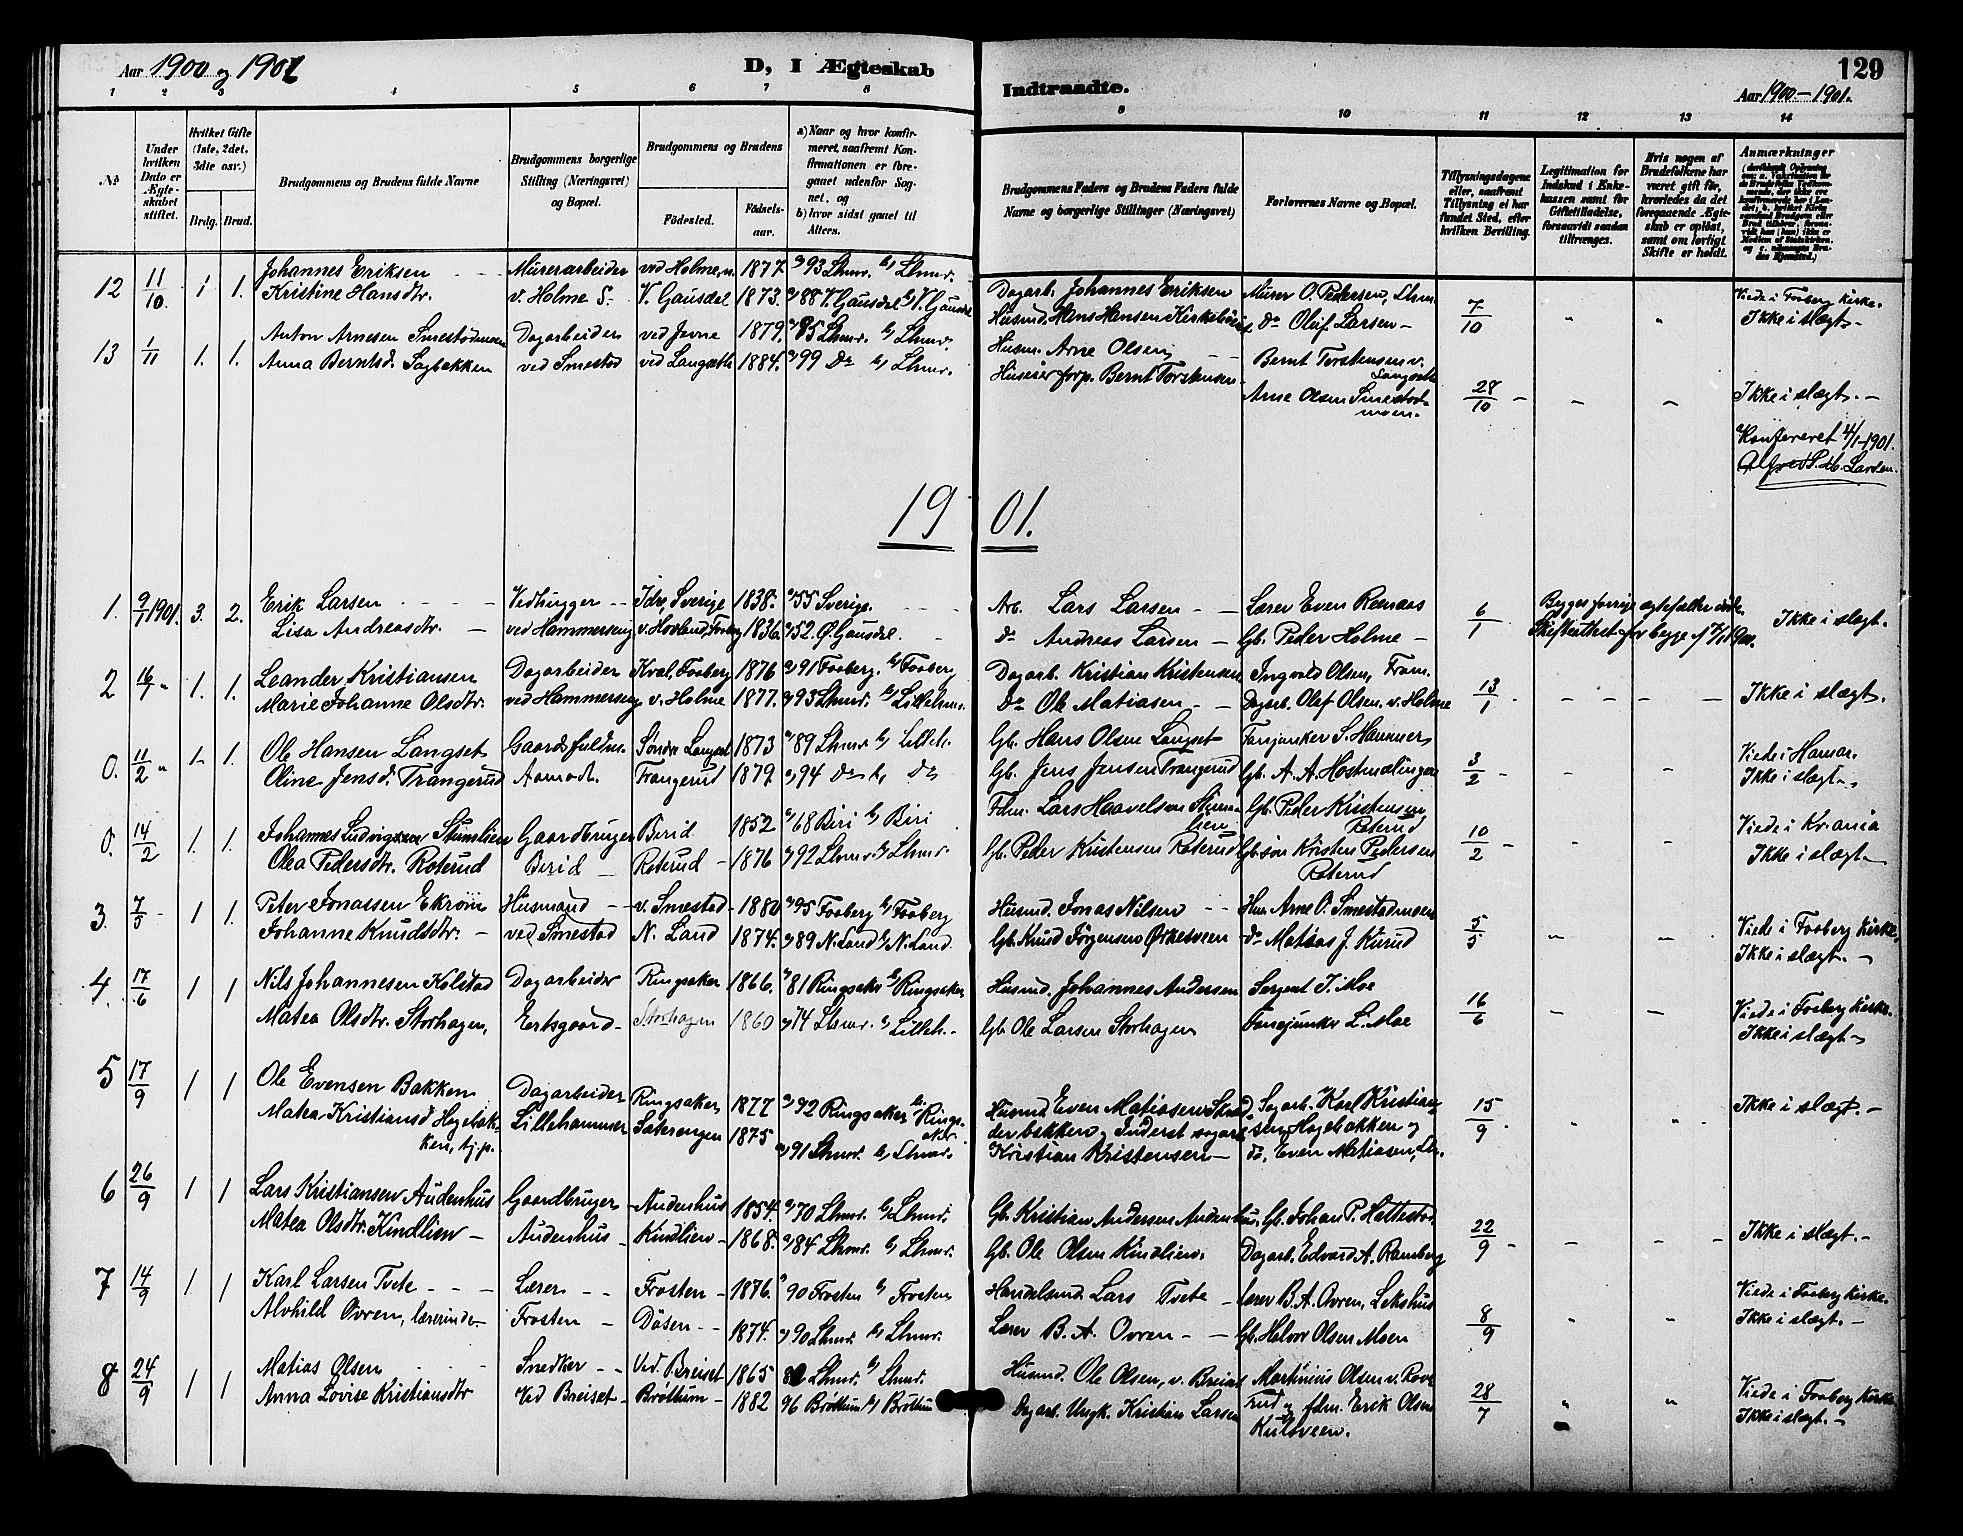 Aar 1900 og 1901
D, I Ægteskab
Indtraadte.
129
Aar 1900-1901.
1 2 3 4 5 6 7 8 9 10 11 12 13 14
No
Under hvilken Dato er Ægteskabet stiftet.
Hvilket Gifte (1ste, 2det, 3die osv.)
Brdg. Brud.
Brudgommens og Brudens fulde Navne
Brudgommens borgerlige Stilling (Næringsvei) og Bopæl.
Brudgommens og Brudens
Fødested.
Fødselsaar.
a) Naar og hvor konfirmeret, saafremt Konfirmationen er foregaaet udenfor Sognet, og
b) hvor sidst gaaet til Alters.
Brudgommens Faders og Brudens Faders fulde Navne og borgerlige Stillinger (Næringsvei)
Forlovernes Navne og Bopæl.
Tillysningsdagene eller, saafremt Tillysning ei har fundet Sted, efter hvilken Bevilling.
Legitimation for Indskud i Enkekassen samt for Giftetilladelse, forsaavidt saadan tiltrænges.
Hvis nogen af Brudefolkene har været gift før, hvorledes da det foregaaende Ægteskab er opløst, samt om lovligt Skifte er holdt.
Anmærkninger
12 11/10 1 1. Johannes Eriksen Murerarbeider ved Holme, n. 1877. a) 93 Lhmr. b) Lhmr.
Kristine Hansdtr. v. Holme S. V. Gausdal 1873. a) 88 V. Gausdal b) V. Gausdal
Dagarb. Johannes Eriksen Murer O. Pedersen, Lhmr. 7/10 " " Viede i Faaberg Kirke.
Husmd. Hans Hansen do Oluf Larsen - Ikke i slægt. -
13 1/11 1. 1. Anton Arnesen Smestadmoen Dagarbeider ved Jevne 1879. a) 95 Lhmr. b) Lhmr.
Anna Berntsd. Sagbakken ved Smestad ved Langseth 1884. a) 99 Do b) Lhmr.
Husm. Arne Olsen Bernt Torstensen v. Langseth
Huseier forp. Bernt Torstensen Arne Olsen Smestadmoen. 28/10 - - - Ikke i slægt. -
Konfereret 4/1-1901.
19 01.
1. 9/1 1901. 3. 2. Erik Larsen Vedhugger Idre, Sverige 1838. a) 55 Sverige.
Lisa Andreasdtr. ved Hammerseng v. Hovland, Faaberg 1836. a) 52 Ø. Gausdal.
Arb. Lars Larsen Lærer Even Reenaas 6/1 Ikke i slægt.
do Andreas Larsen - Gb. Peder Holme -
2 16/1 " 1. 1. Leander Kristiansen Dagarbeider Kval, Faaberg 1876 a) 91 Faaberg. b) Faaberg
Marie Johanne Olsdtr. ved Hammerseng v. Holme 1877. a) 93 Lhmr. b) Lilleh.
Dagarb. Kristian Kristensen Ingvald Olsen, Fram. 13/1 Ikke i slægt.
Do Ole Matiasen - Dagarb. Olaf Olsen. v. Holme
0. 11/2 " 1. 1. Ole Hansen Langset Gaardsfuldm. Søndre Langset 1873 a) 89 Lhmr b) Lilleh.
Oline Jensd. Trangerud Aamodt. Trangerud 1879 a) 94 Do b) Do
Gb. Hans Olsen Langset Fanejunker S. Hammer 3/2 - - Viede i Hamar.
Gb. Jens Jensen Trangerud Gb. A. A. Hostmælingen Ikke i slægt.
0. 14/2 1. 1. Johannes Ludvigsen Skumlien Gaardbruger Berid 1852 a) 68 Biri b) Biri
Olea Pedersdtr. Roterud Berid Roterud - 1876 a) 92 Lhmr b) Lhmr.
Fdm. Lars Haavelsen Skumlien Gb. Peder Kristensen Roterud 10/2 - Viede i Kr.ania
Gb. Peder Kristensen Roterud Gb.søn Kristen Pedersen Roterud Ikke i slægt. -
3. 7/5 1 1. Peter Jonassen Ekrom Husmand v. Smestad - 1880 a) 95 Faaberg b) Faaberg
Johanne Knudsdtr. - ved Smestad N. Land 1874. a) 89 N. Land b) N. Land.
Husmd. Jonas Nilsen Hm. Arne O. Smestadmoen 5/5 - - Viede i Faaberg Kirke,
Gb. Knud Jørgensen Ørkesveen do Matias J. Kurud Ikke i slægt. -
4. 17/6 1 1 Nils Johannesen Kolstad Dagarbeider Ringsaker 1866. a) 81 Ringsaker b) Ringsaker
Matea Olsdtr. Storhagen, Ertsgaard - Storhagen 1860 a) 74 Lhmr. b) Lilleh.
Husmd. Johannes Andersen Sergent T. Moe 16/6 - - Viede i Faaberg Kirke.
Gb. Ole Larsen Storhagen Fanejunker L. Moe Ikke i slægt -
5 17/9 1 1 Ole Evensen Bakken Dagarbeider Ringsaker 1877 a) 92 Ringsaker b) Ringsaker
Matea Kristiansd Hagebakken, tj.p. Lillehammer Sæterengen 1875 a) 91 Lhmr. b) Lhmr.
Husmd. Even Matiasen Sagarb. Karl Kristiansen Hagebakken og 15/9 " " Ikke i slægt. -
Kristian Kristensen - do. Even Matiasen, Lh.
6 26/9 1 1 Lars Kristiansen Audenhus Gaardbruger Audenhus 1854. a) 70 Lhmr. b) Lhmr.
Matea Olsdtr. Kindlien - Audenhus - Kindlien - 1868. a) 84 Lhmr. b) Lhmr.
Gb. Kristian Andersen Audenhus, Gb. Johan P. Hattestad 22/9 - - - Ikke i slægt. -
Gb. Ole Olsen Kindlien. Dagarb. Edvard A. Ramberg
7 14/9 1 1 Karl Larsen Tvete Lærer Frosten - 1876. a) 90 Frosten b) Frosten
Alvhild Ovren, lærerinde. - Frosten - Døsen - 1874. a) 90 Lhmr. b) Lhmr.
Handelsmd Lars Tvete - Lærer B. A. Ovren, Lekshus 8/9 " " Viede i Faaberg Kirke.
Lærer B. A. Ovren - Gb. Halvor Olsen Moen Ikke i slægt. -
8 24/9 1 1 Matias Olsen Snedker Ved Breiset 1865 Lhmr. b) Lhmr.
Anna Lovise Kristiansdtr Ved Breiset - Brøttum - 1882 96 Brøttum b) Brøttum
Husmd. Ole Olsen, v. Breiset Martinius Olsen v. Roverud og fdm. Erik Olsen 28/7 " " Viede i Faaberg Kirke.
Dagarb. Ungk. Kristian Larsen Kulsveen. Ikke i slægt. -